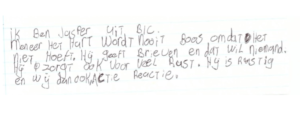 ik Ben Jasper uit B1C.
meneer Het Hart wordt nooit Boos omdat Het
niet Hoeft. Hij geeft Brieven en dat wil niemand.
Hij zorgt ook voor veel Rust. Hij is Rustig
en wij dan ook Actie Reactie.